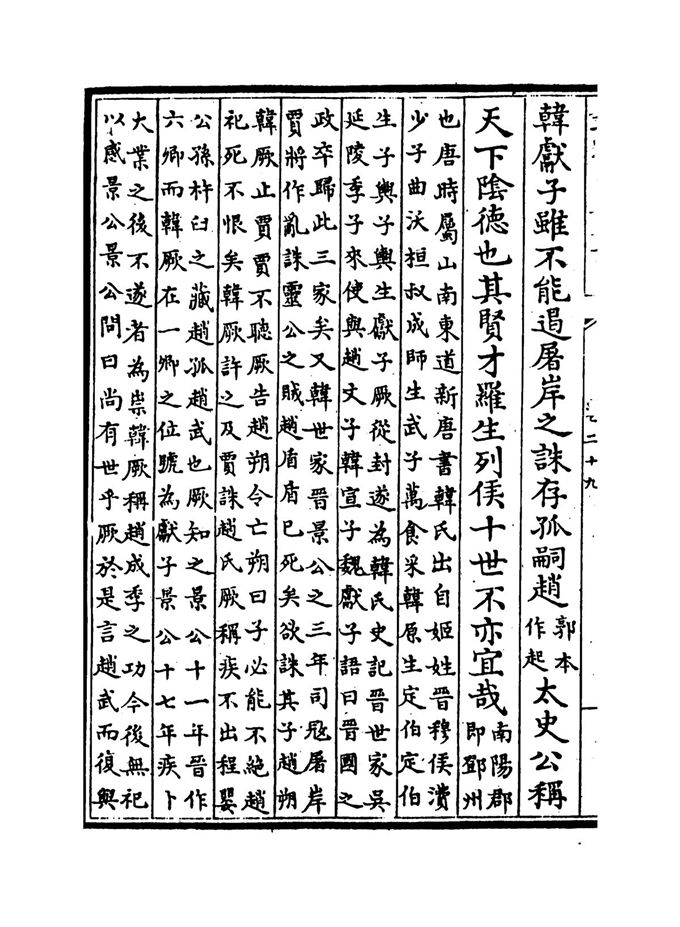 韓獻子雖不能遏屠岸之誅存孤嗣趙郭本作起太史公稱
天下陰德也其賢才羅生列侯十世不亦宜哉南陽郡即鄧州
也唐時屬山南東道新唐書韓氏出自姬姓晉穆侯㵒
少子曲沃桓叔成師生武子萬食采韓原生定伯定伯
生子輿子輿生獻子厥從封遂為韓氏史記晉世家吳
延陵季子來使與趙文子韓宣子魏獻子語曰晉國之
政卒歸此三家矣又韓世家晉景公之三年司冦屠岸
賈將作亂誅靈公之賊趙盾盾已死矣欲誅其子趙朔
韓厥止賈賈不聽厥告趙朔令亡朔曰子必能不絶趙
祀死不恨矣韓厥許之及賈誅趙氏厥稱疾不出程嬰
公孫杵臼之藏趙孤趙武也厥知之景公十一年晉作
六卿而韓厥在一卿之位號為獻子景公十七年疾卜
大業之後不遂者為祟韓厥稱趙成季之功今後無祀
以感景公景公問曰尚有世乎厥於是言趙武而復與
二十九